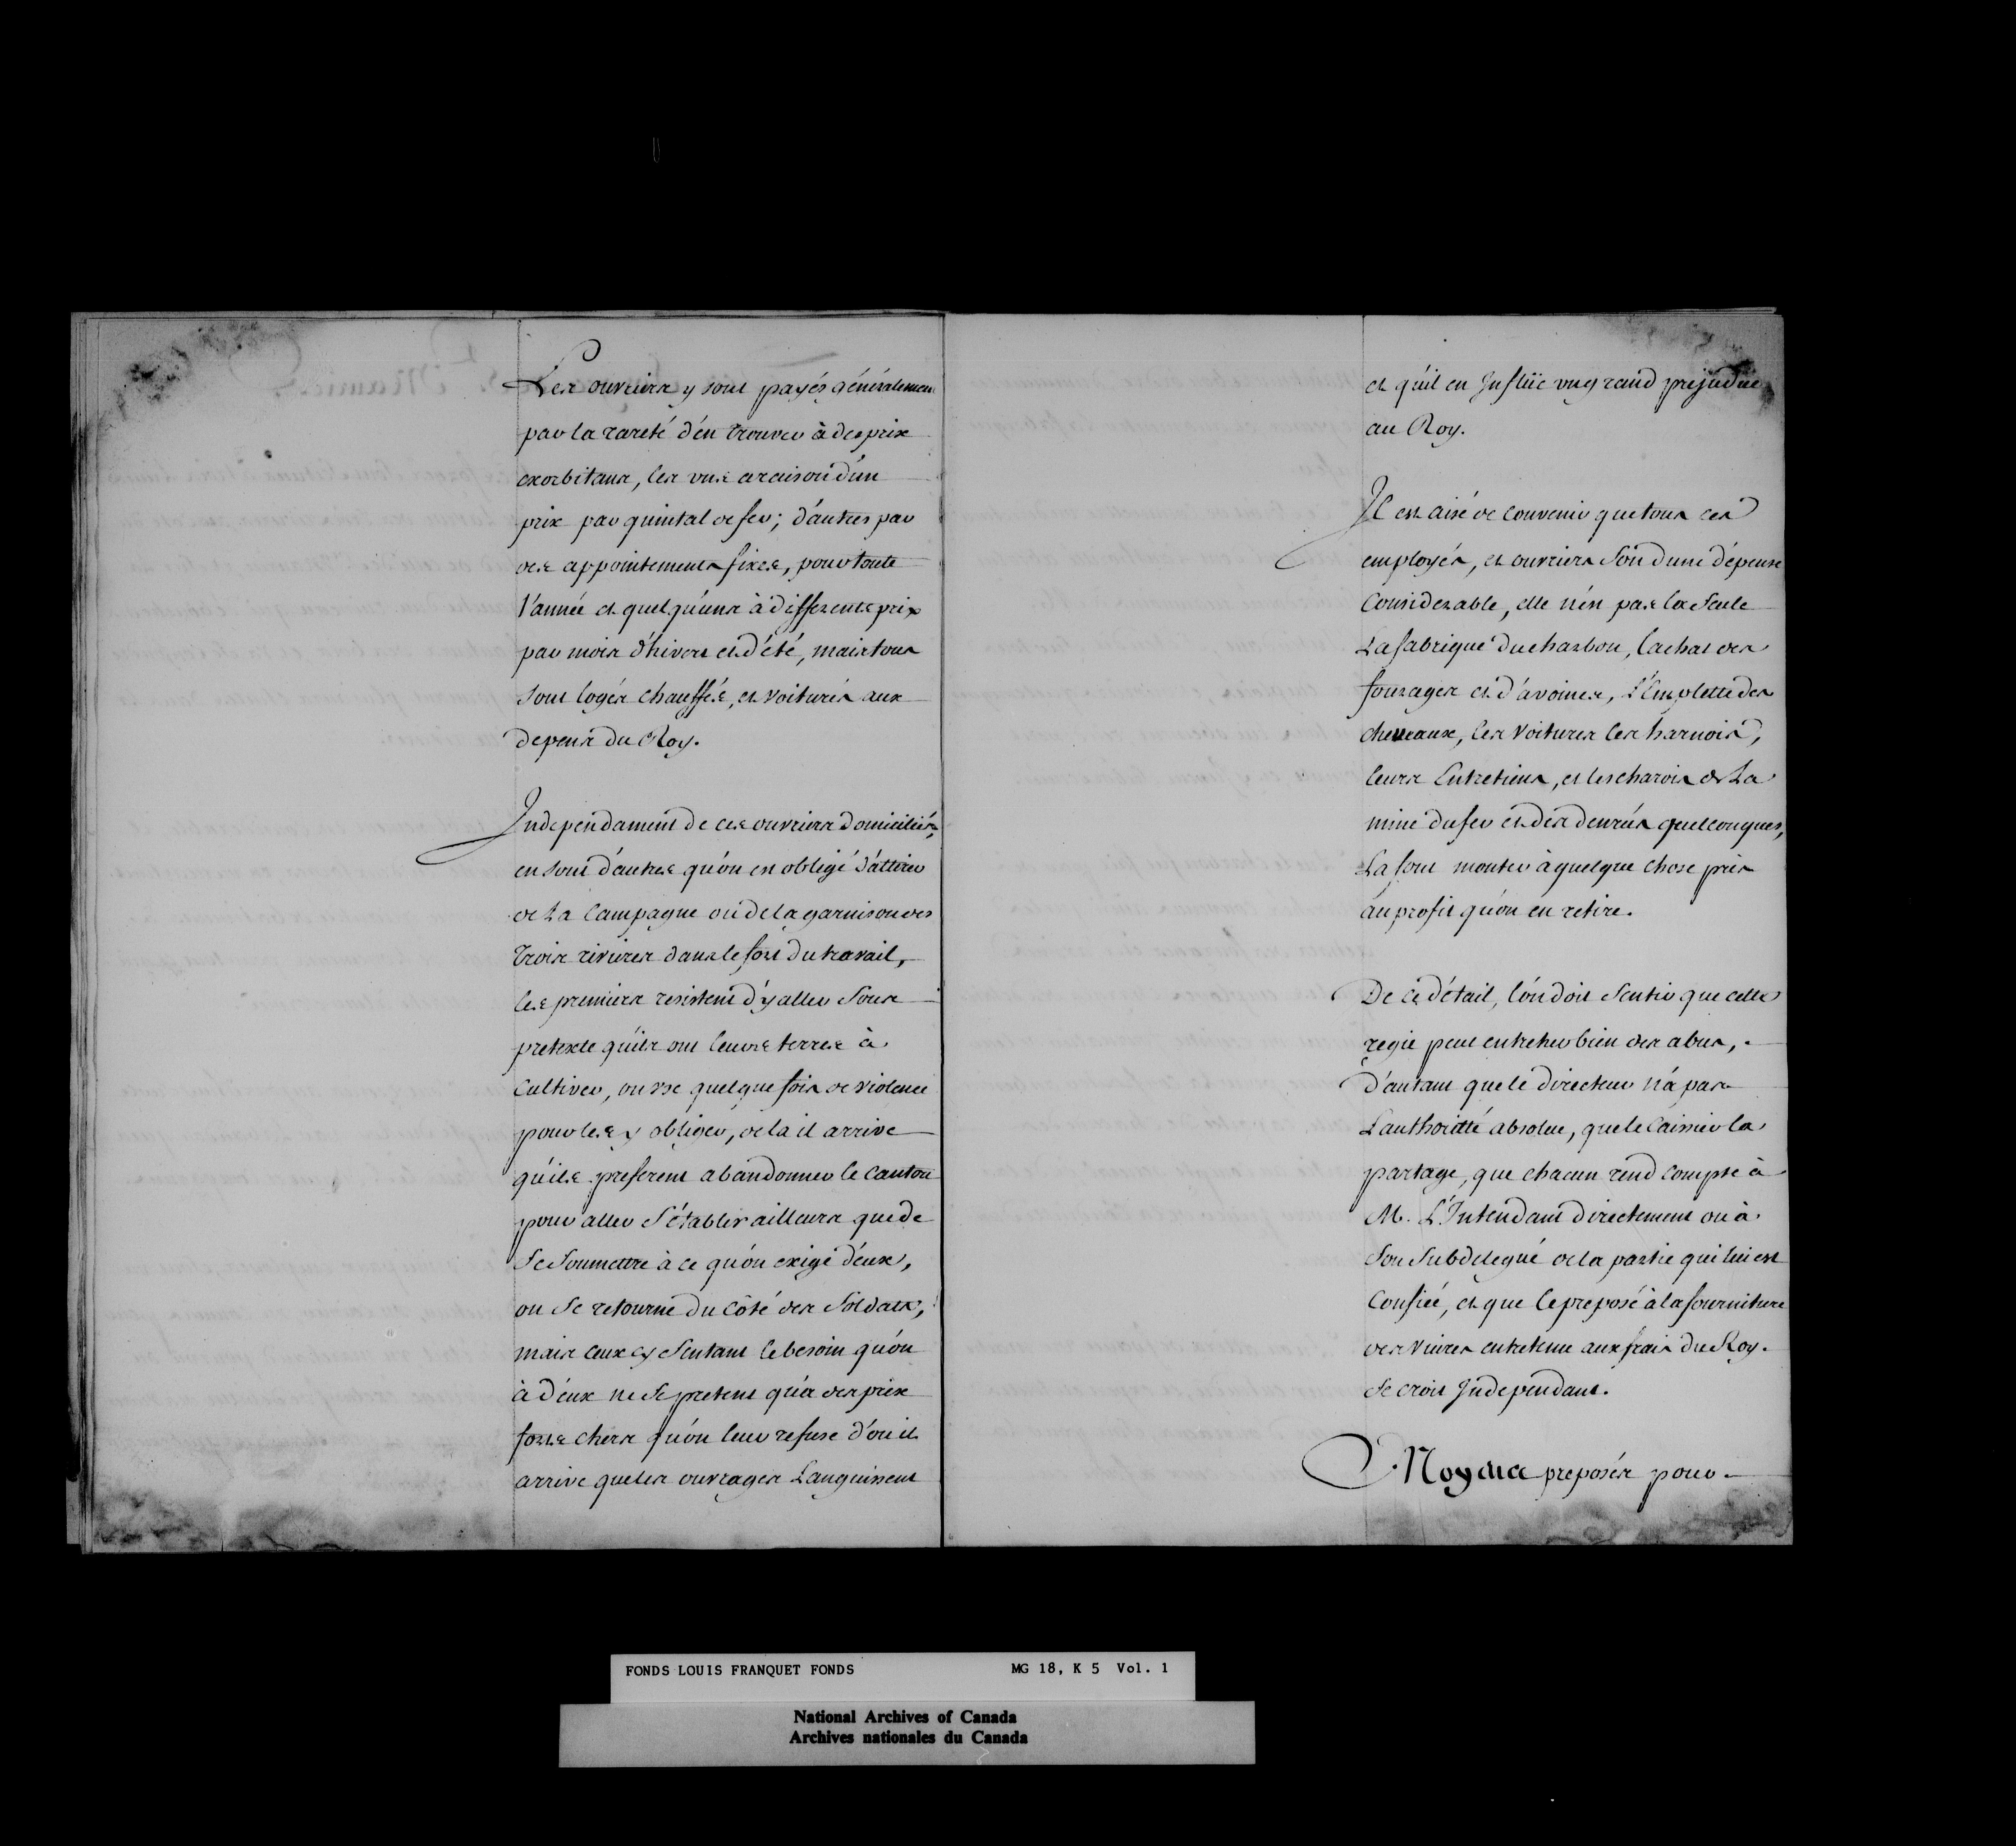 Les ouvriers y sont payés généralement
par la rareté d'en trouver à des prix
exorbitans, les uns a raison d'un
prix par quintal de fer; d'autres par
des appointemens fixes, pour toute
l'année et quelqu'uns à differents prix
par mois d'hivers et d'été, mais tous
sont logés chauffés, et voiturés aux
depens du Roy.
Independament de ces ouvriers domiciliés,
en sont d'autres qu'on est obligé d'attirer
de La Campagne ou de la garnison des
trois rivieres dans le fort du travail,
les premiers resistent d'y aller sous
pretexte qu'ils ont leurs terres à
Cultiver, on use quelque fois de violence
pour les y obliger, de la il arrive
qu'ils preferent abandonner le Canton
pour aller s'établir ailleurs que de
se soumettre à ce qu'on exige d'eux,
on se retourne du Côté des Soldats,
mais ceux cy sentant le besoin qu'on
à d'eux ne se pretent qu'a des prix
forts chers qu'on leur refuse d'ou il
arrive que les ouvrages Languissent
et qu'il en Influe un grand prejudice
au Roy.
Il est aisé de convenir que tous ces
employés, et ouvriers sont d'une dépense
Considerable, elle n'est pas la seule
La fabrique du charbon, lachat des
fourages et d'avoines, L'Emplette des
chevaux, les voitures les harnois,
leurs Entretiens, et les charois de La
mine du fer et des denrées quelconques,
La font monter à quelque chose près
au profit qu'on en retire.
De ce détail, l'on doit sentir que cette
regie peut entrainer bien des abus,
d'autant que le directeur n'a pas
L'authorité absolue, que le Caissier la
partage, que chacun rend compte à
M. L'Intendant directement ou à
son Subdelegué de la partie qui lui est
Confiée, et que le preposé à la fourniture
des vivres entretenu aux frais du Roy.
se croit Independant.
Moyens preposés pour
FONDS LOUIS FRANQUET FONDS MG 18, K 5 Vol. 1
National Archives of Canada
Archives nationales du Canada